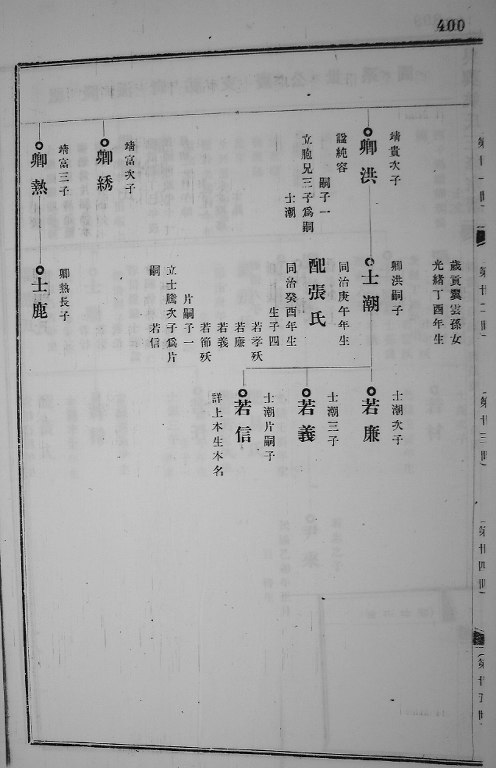 400
第廿一世
第廿二世
第廿三世
第廿四世
第廿五世
歲貢翼雲孫女
光緒丁酉年生
靖貴次子
卿洪
諡純容
嗣子一
立胞兄三子爲嗣
士潮
卿洪嗣子
士潮
同治庚午年生
配張氏
同治癸酉年生
生子四
若孝殀
若廉
若義
若節殀
片嗣子一
立士騰次子爲片
嗣 若信
士潮次子
若廉
士潮三子
若義
士潮片嗣子
若信
詳上本生本名
靖富次子
卿綉
靖富三子
卿熱
卿熱長子
士鹿